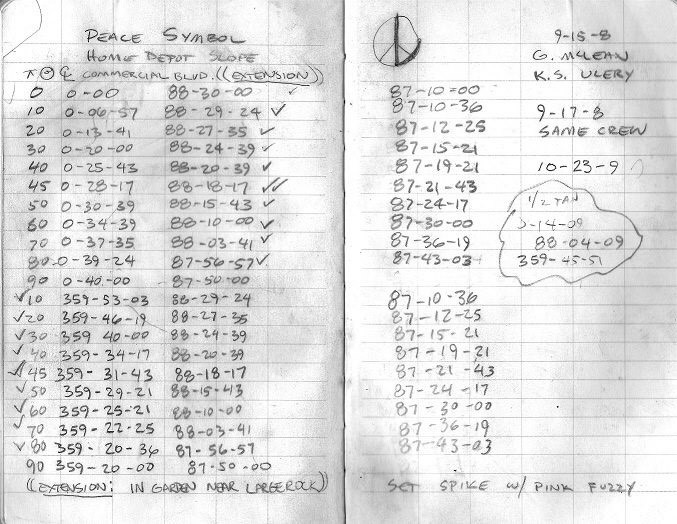 PEACE SYMBOL
HOME DEPOT SLOPE
π Θ ℄ COMMERCIAL BLVD. ((EXTENSION))
0 0-00 88-30-00 ✓
10 0-06-57 88-29-24 ✓
20 0-13-41 88-27-35 ✓
30 0-20-00 88-24-39 ✓
40 0-25-43 88-20-39 ✓
45 0-28-17 88-18-17 ✓✓
50 0-30-39 88-15-43 ✓
60 0-34-39 88-10-00 ✓
70 0-37-35 88-03-41 ✓
80 0-39-24 87-56-57 ✓
90 0-40-00 87-50-00
✓10 359-53-03 88-29-24
✓20 359-46-19 88-27-35
✓30 359 40-00 88-24-39
✓40 359-34-17 88-20-39
✓✓45 359-31-43 88-18-17
✓50 359-29-21 88-15-43
✓60 359-25-21 88-10-00
✓70 359-22-25 88-03-41
✓80 359-20-36 87-56-57
90 359-20-00 87-50-00
((EXTENSION: IN GARDEN NEAR LARGE ROCK))
9-15-8
G. McLEAN
K.S. ULERY
9-17-8
SAME CREW
10-23-9
1/2 TAN
0-14-09
88-04-09
359-45-51
87-10-00
87-10-36
87-12-25
87-15-21
87-19-21
87-21-43
87-24-17
87-30-00
87-36-19
87-43-03
87-10-36
87-12-25
87-15-21
87-19-21
87-21-43
87-24-17
87-30-00
87-36-19
87-43-03
SET SPIKE W/ PINK FUZZY